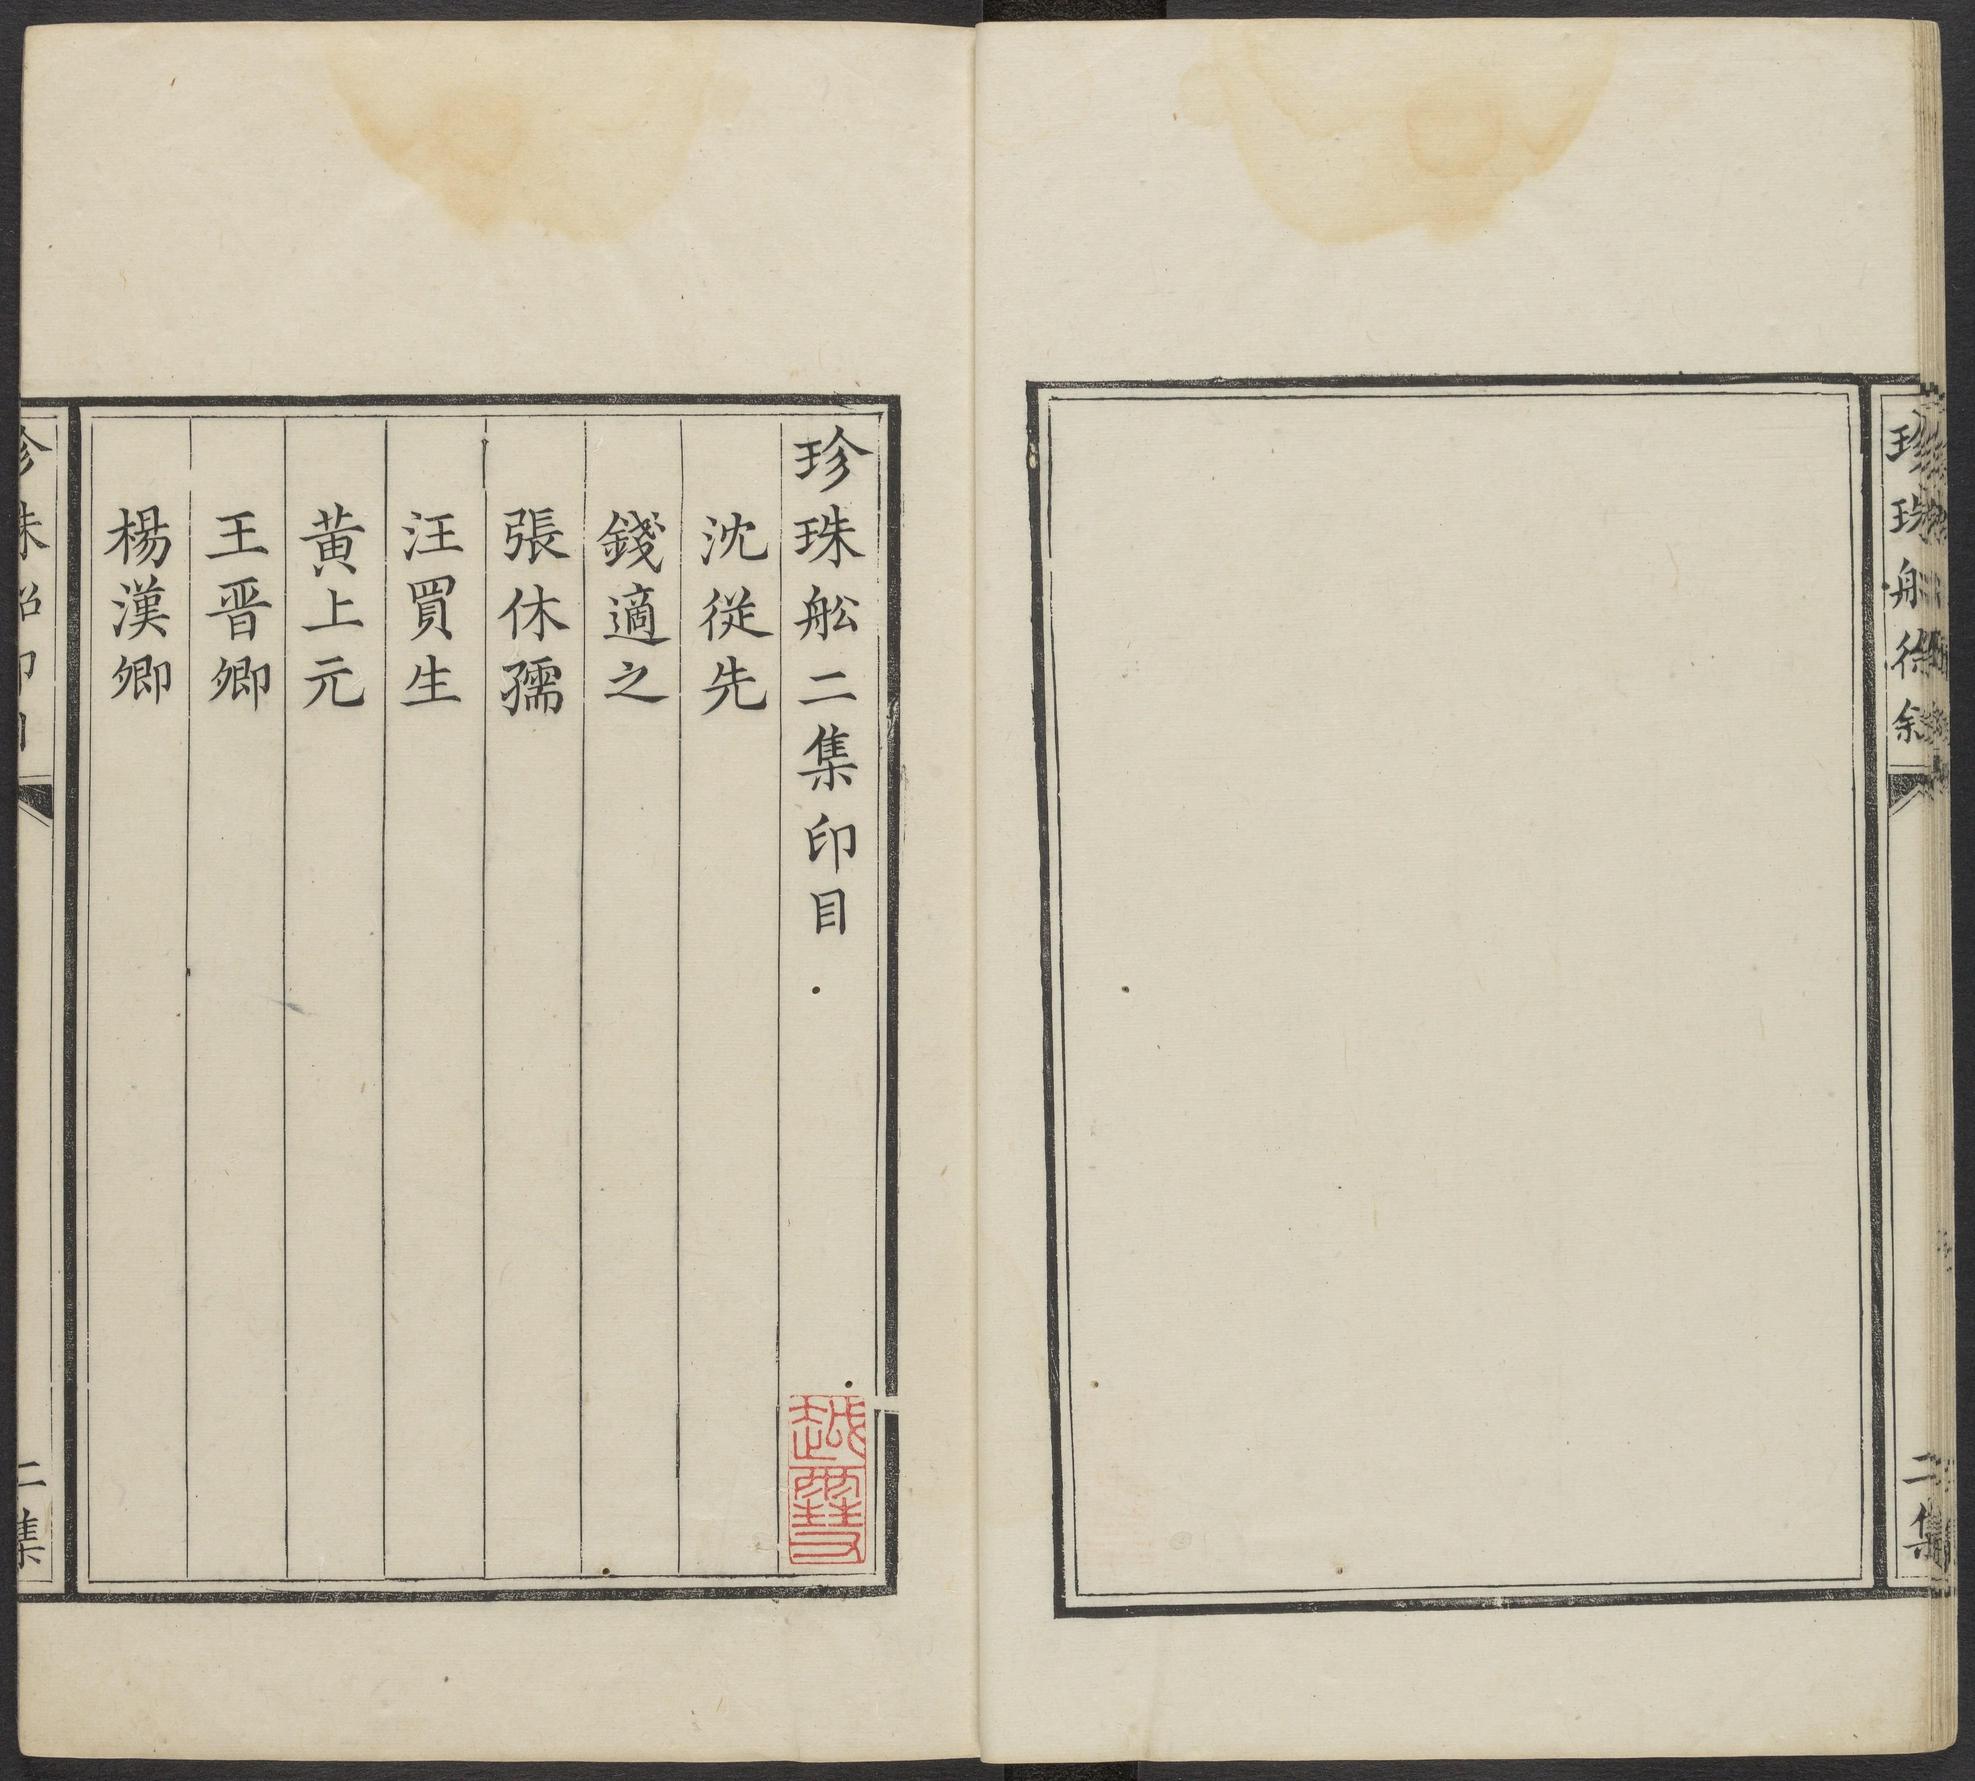 珍珠舩徐
二集
珍珠舩二集印目
沈從先
錢適之
張休孺
汪買生
黃上元
王晋卿
楊漢卿
珍珠舩印目
二集